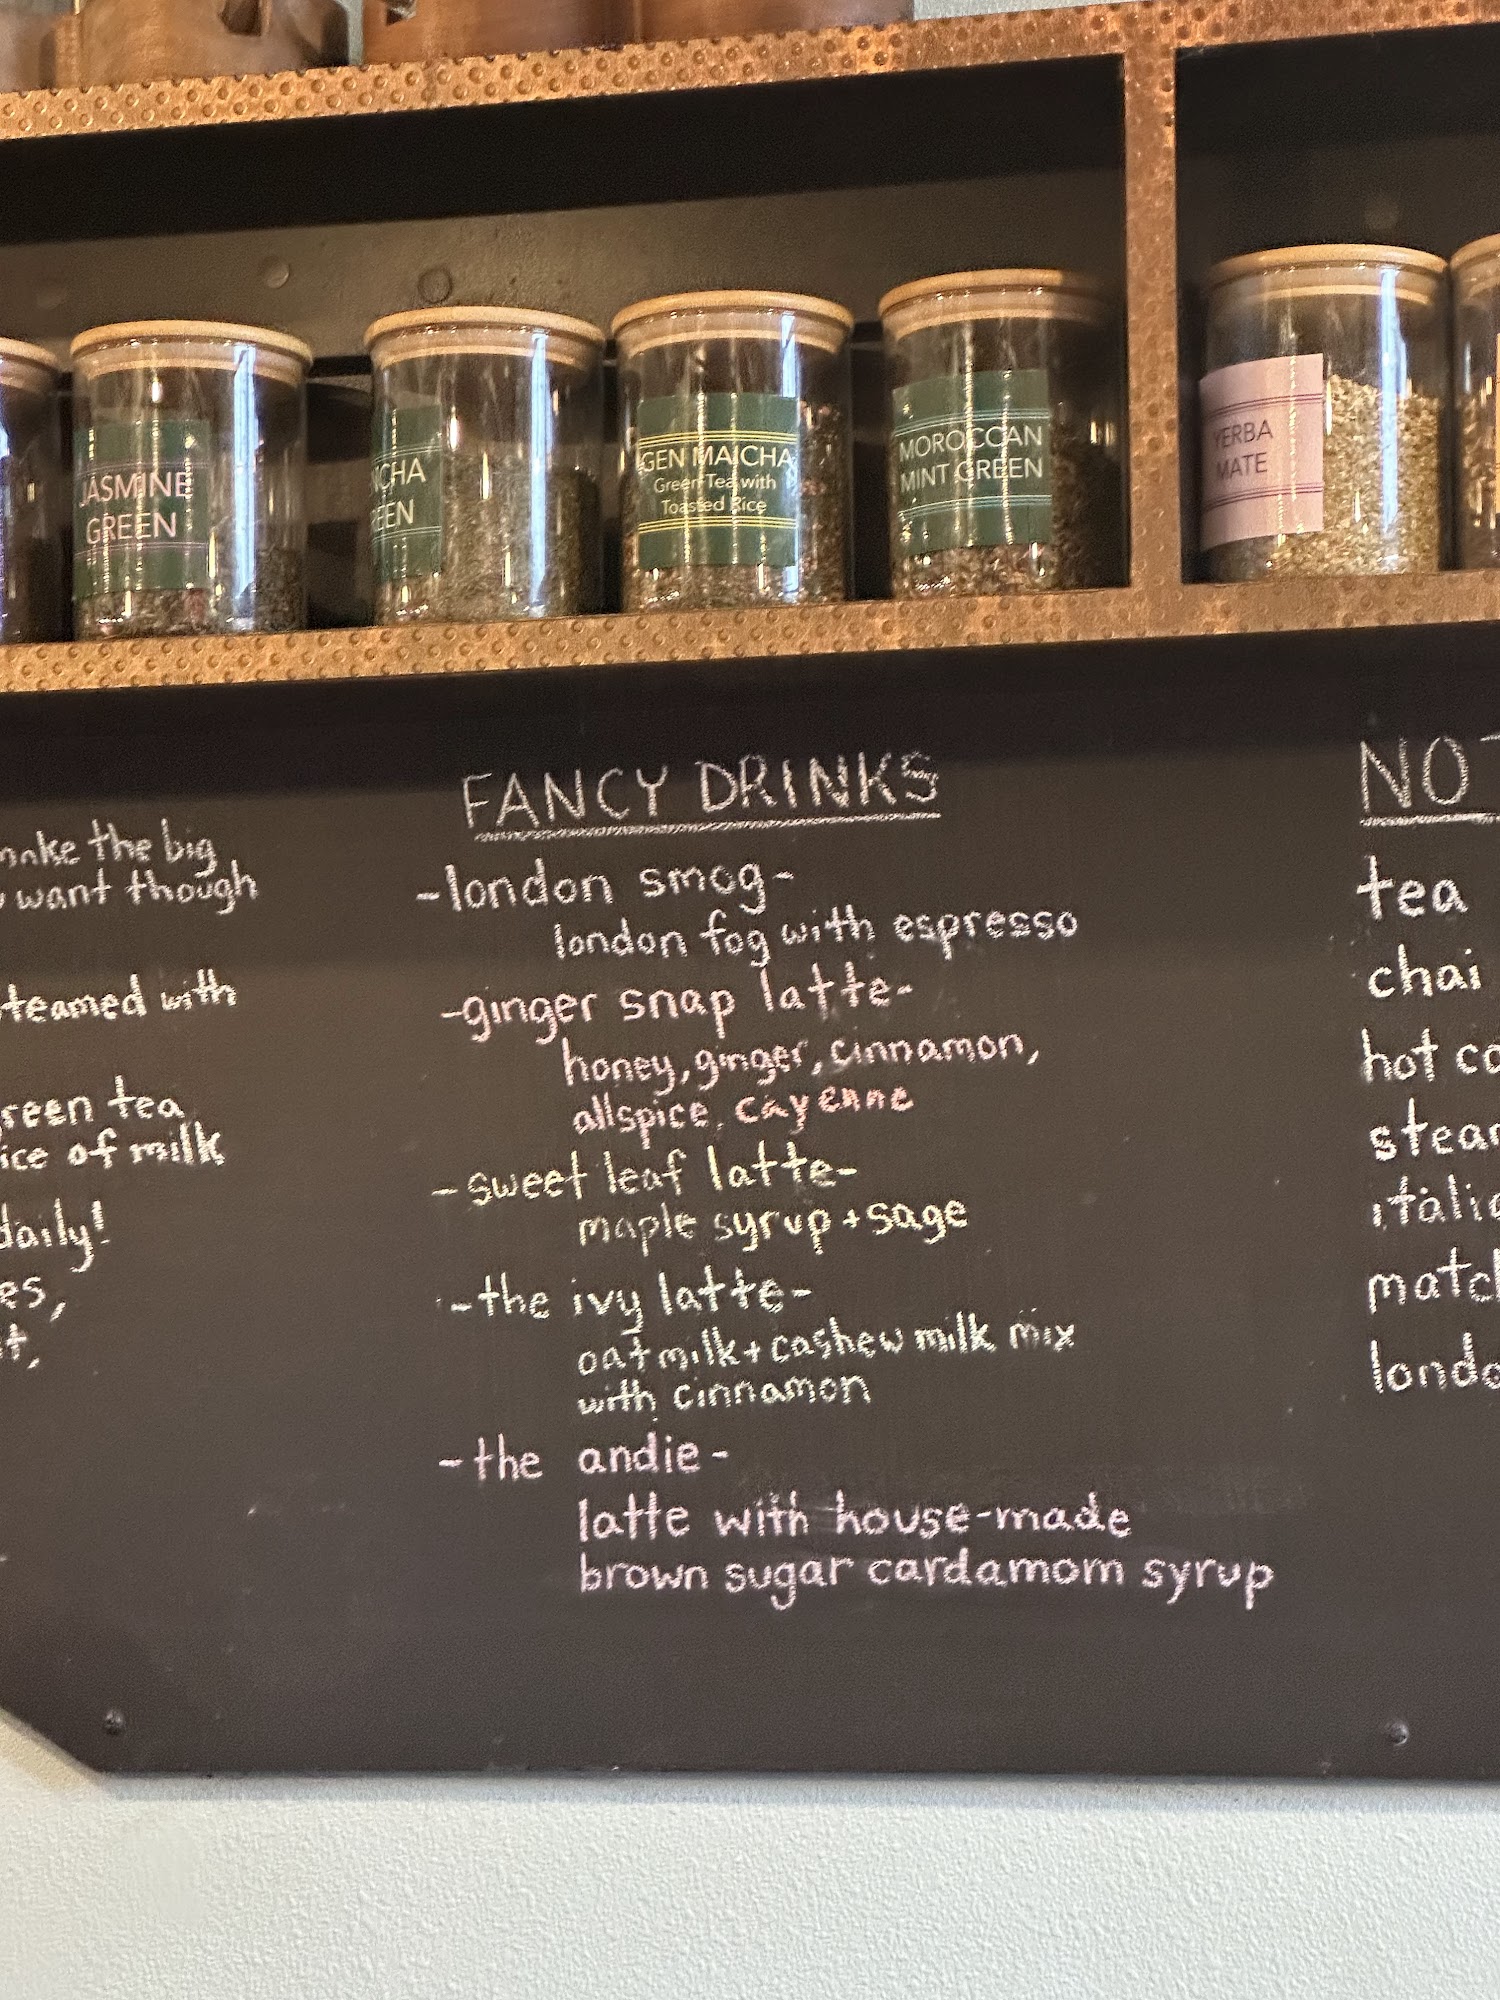 JASMINE
GREEN
GEN MAICHA
Green Tea with
Toasted Rice
MOROCCAN
MINT GREEN
YERBA
MATE
make the big
want though
teamed with
green tea
ice of milk
daily!
FANCY DRINKS
-london smog-
london fog with espresso
-ginger snap latte-
honey, ginger, cinnamon,
allspice, cayenne
-sweet leaf latte-
maple syrup + sage
-the ivy latte-
oatmilk + cashew milk mix
with cinnamon
-the andie-
latte with house-made
brown sugar cardamom syrup
NO
tea
chai
hot